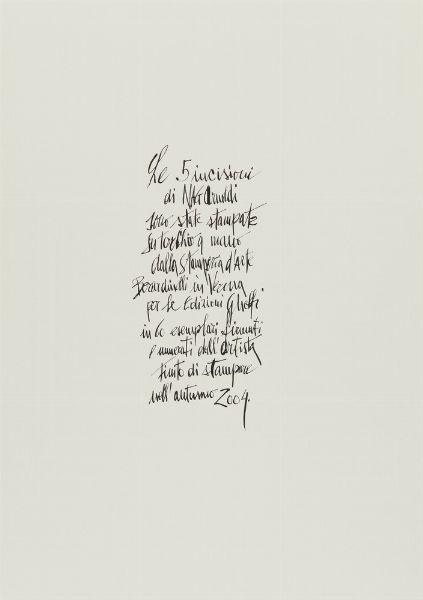 Le 5 incisioni
di
sono state stampate
su torchio a mano
dalla Stamperia d'Arte
Berardinelli in Verona
per le Edizioni Ghelfi
in 60 esemplari firmati
e numerati dall'artista
finito di stampare
nell'autunno 2004.